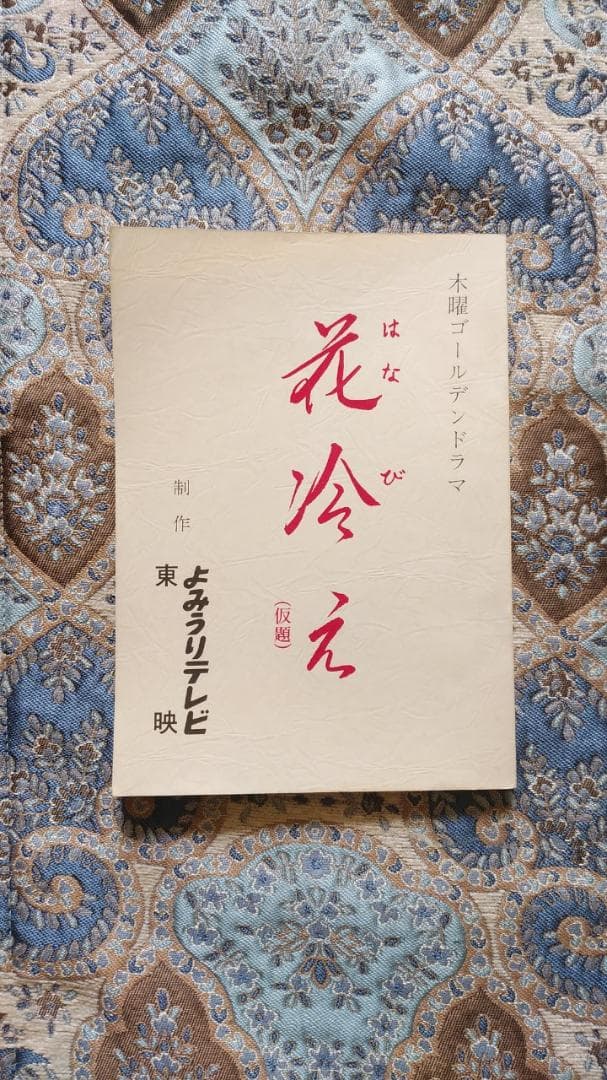 木曜ゴールデンドラマ
はな び
花冷え
(仮題)
制作
よみうりテレビ
東映